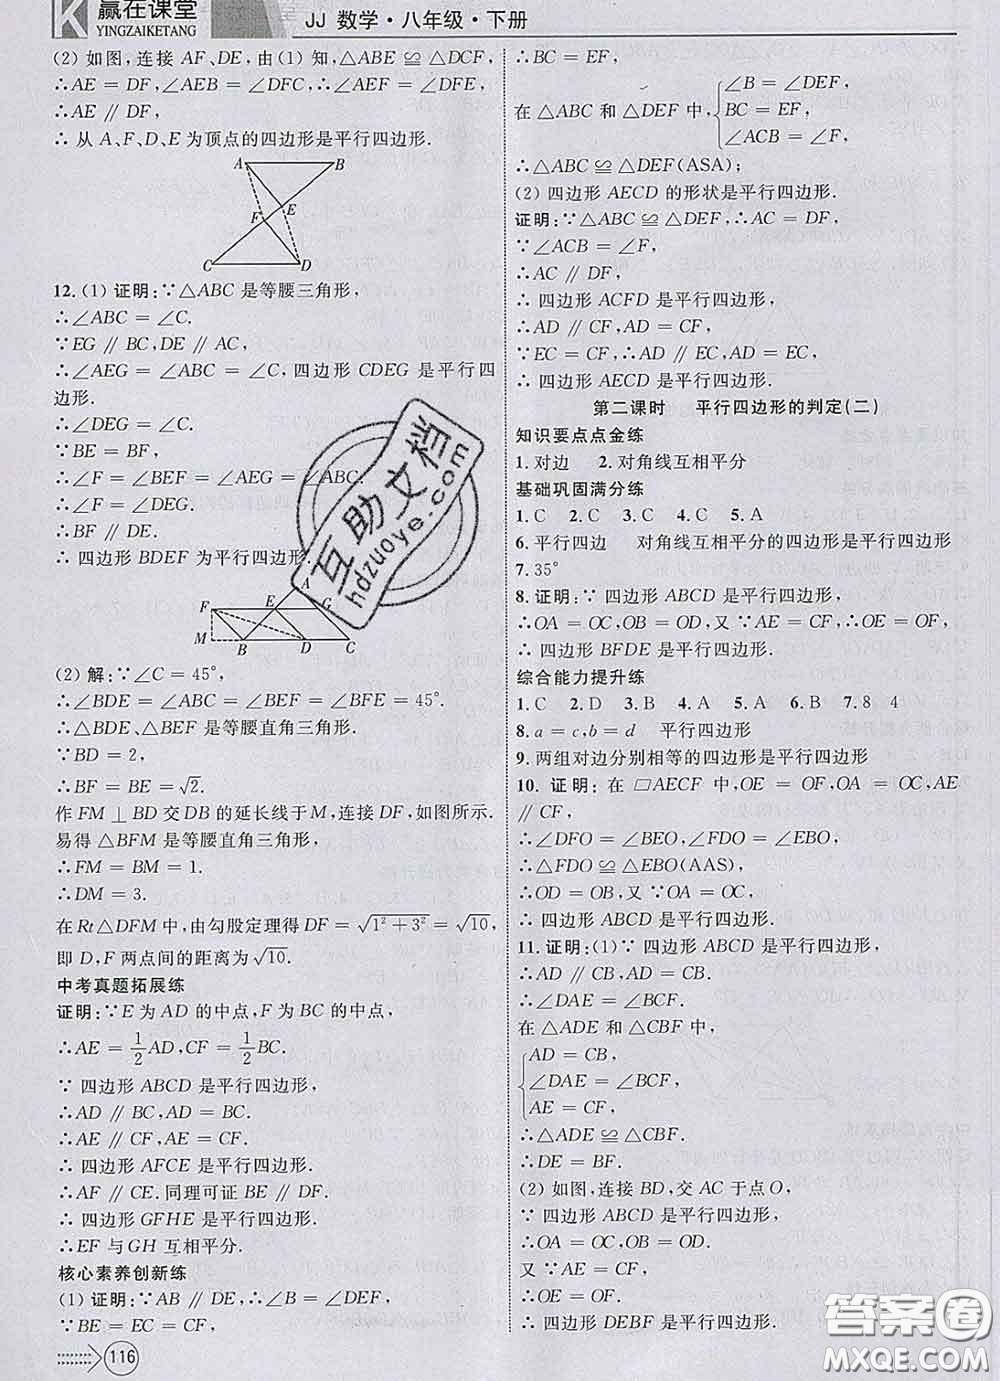 赢在课堂
YINGZAIKETANG
JJ 数学·八年级·下册
(2) 如图,连接 AF、DE,由(1) 知,△ABE ≌ △DCF,
∴AE = DF,∠AEB = ∠DFC,∴∠AEF = ∠DFE,
∴AE ∥ DF,
∴ 从 A、F、D、E 为顶点的四边形是平行四边形.
A B
F E
C D
12.(1) 证明:∵△ABC 是等腰三角形,
∴∠ABC = ∠C.
∵EG ∥ BC,DE ∥ AC,
∴∠AEG = ∠ABC = ∠C,四边形 CDEG 是平行四
边形.
∴∠DEG = ∠C.
∵BE = BF,
∴∠F = ∠BEF = ∠AEG = ∠ABC.
∴∠F = ∠DEG.
∴BF ∥ DE.
∴ 四边形 BDEF 为平行四边形.
A
F E G
M B D C
(2) 解:∵∠C = 45°,
∴∠BDE = ∠ABC = ∠BEF = ∠BFE = 45°.
∴△BDE、△BEF 是等腰直角三角形.
∵BD = 2,
∴BF = BE = √2.
作 FM ⊥ BD 交 DB 的延长线于 M,连接 DF,如图所示.
易得 △BFM 是等腰直角三角形,
∴FM = BM = 1.
∴DM = 3.
在 Rt△DFM 中,由勾股定理得 DF = √(1² + 3²) = √10,
即 D,F 两点间的距离为 √10.
中考真题拓展练
证明:∵E 为 AD 的中点,F 为 BC 的中点,
∴AE = 1/2 AD,CF = 1/2 BC.
∵ 四边形 ABCD 是平行四边形,
∴AD ∥ BC,AD = BC.
∴AE ∥ CF,AE = CF.
∴ 四边形 AFCE 是平行四边形.
∴AF ∥ CE.同理可证 BE ∥ DF.
∴ 四边形 GFHE 是平行四边形.
∴EF 与 GH 互相平分.
核心素养创新练
(1) 证明:∵AB ∥ DE,∴∠B = ∠DEF,
∵BE = EC = CF,
116
∴BC = EF,
在 △ABC 和 △DEF 中,{∠B = ∠DEF,
BC = EF,
∠ACB = ∠F,
∴△ABC ≌ △DEF(ASA);
(2) 四边形 AECD 的形状是平行四边形.
证明:∵△ABC ≌ △DEF,∴AC = DF,
∵∠ACB = ∠F,
∴AC ∥ DF,
∴ 四边形 ACFD 是平行四边形,
∴AD ∥ CF,AD = CF,
∵EC = CF,∴AD ∥ EC,AD = EC,
∴ 四边形 AECD 是平行四边形.
第二课时 平行四边形的判定(二)
知识要点点金练
1.对边 2.对角线互相平分
基础巩固满分练
1.C 2.C 3.C 4.C 5.A
6.平行四边 对角线互相平分的四边形是平行四边形
7.35°
8.证明:∵ 四边形 ABCD 是平行四边形,
∴OA = OC,OB = OD,又 ∵AE = CF,∴OE = OF,
∴ 四边形 BFDE 是平行四边形.
综合能力提升练
1.C 2.D 3.B 4.A 5.A 6.B 7.8 4
8.a = c,b = d 平行四边形
9.两组对边分别相等的四边形是平行四边形
10. 证明:在 □AECF 中,OE = OF,OA = OC,AE
∥ CF,
∴∠DFO = ∠BEO,∠FDO = ∠EBO,
∴△FDO ≌ △EBO(AAS),
∴OD = OB,又 ∵OA = OC,
∴ 四边形 ABCD 是平行四边形.
11.证明:(1)∵ 四边形 ABCD 是平行四边形,
∴AD ∥ CB,AD = CB.
∴∠DAE = ∠BCF.
在 △ADE 和 △CBF 中,
{AD = CB,
∠DAE = ∠BCF,
AE = CF,
∴△ADE ≌ △CBF.
∴DE = BF.
(2) 如图,连接 BD,交 AC 于点 O,
∵ 四边形 ABCD 是平行四边形,
∴OA = OC,OB = OD.
又 ∵AE = CF,
∴OE = OF.
∴ 四边形 DEBF 是平行四边形.
互助文档
hdzuoye.com
答案圈
MXQE.COM